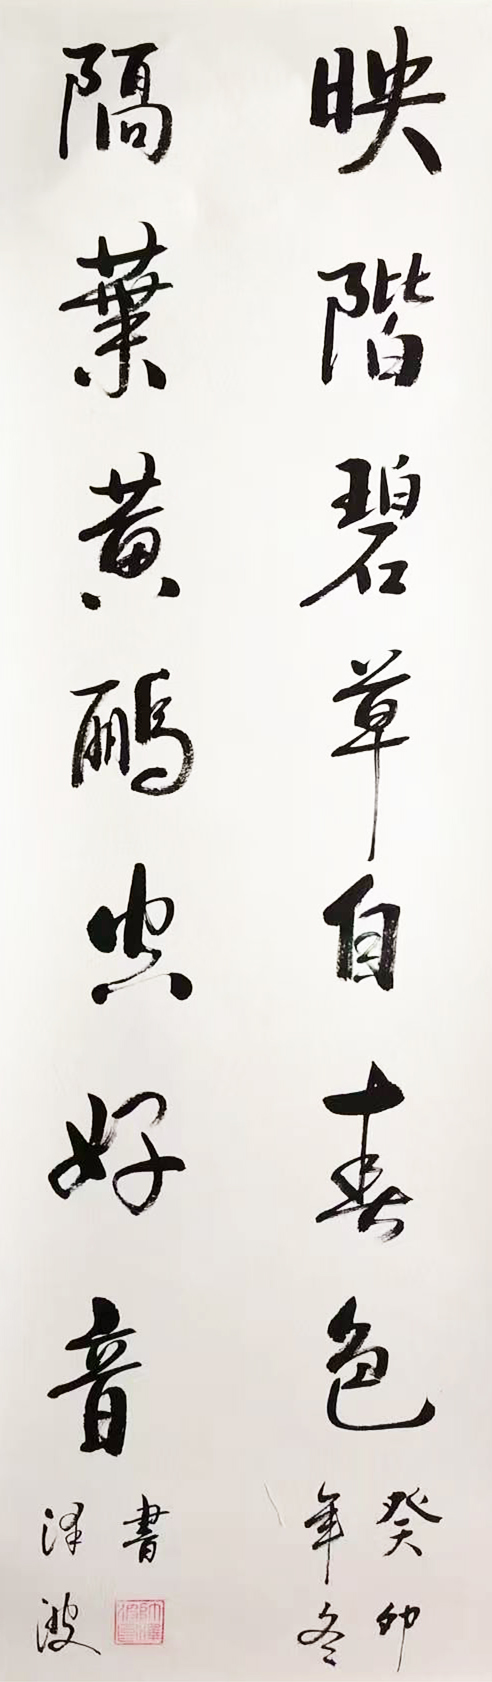 映階碧草自春色
癸卯
年冬
隔葉黄鸝空好音
書
泽波